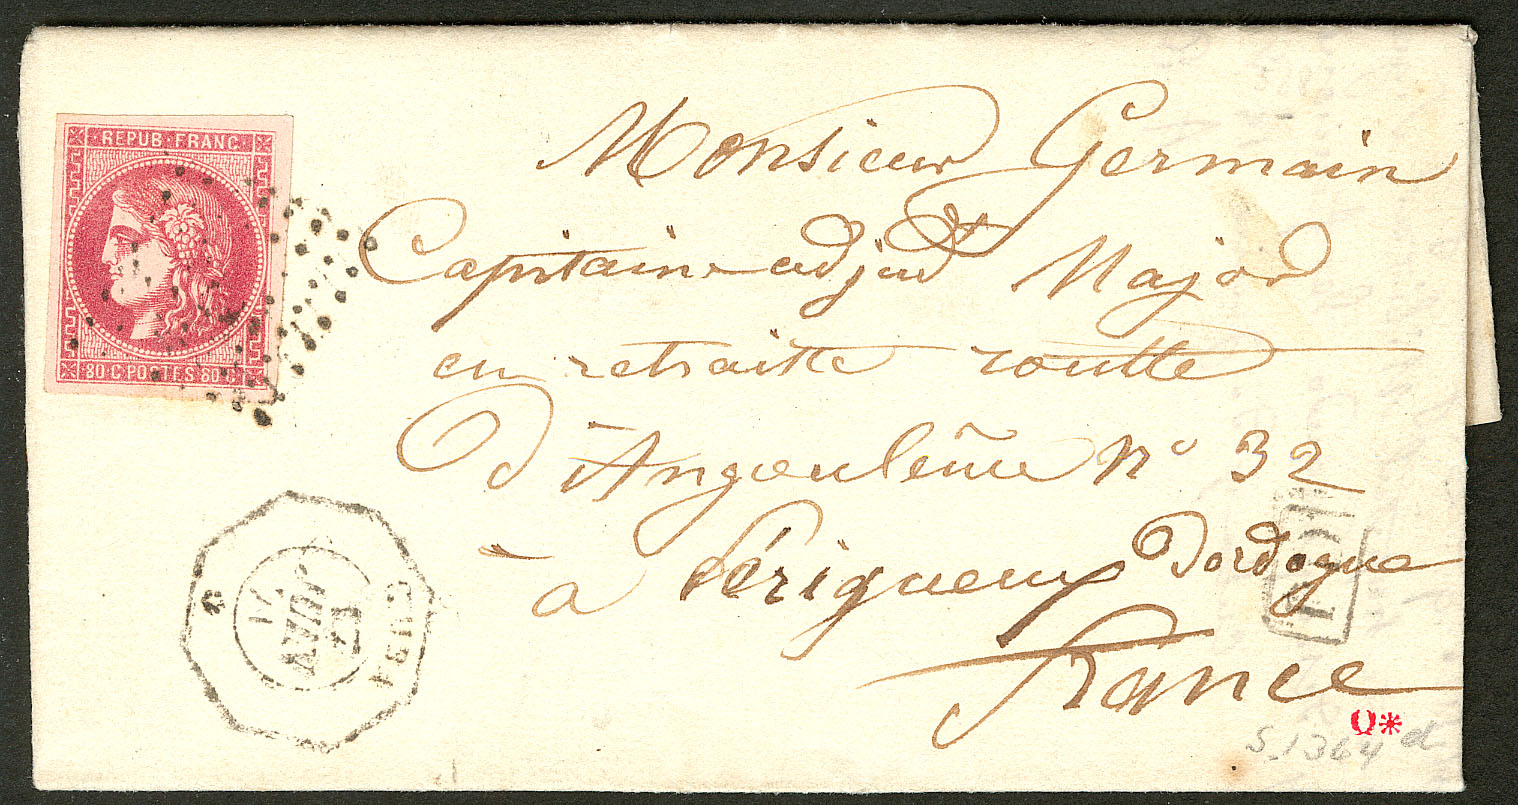 REPUB·FRANC·
80·C·POSTES·80·C·
Monsieur Germain
Capitaine adjud Major
en retraite routte
D'Angoulême N° 32
à Périgueux Dordogne
France
AVRIL
71
PD
S.1364 d